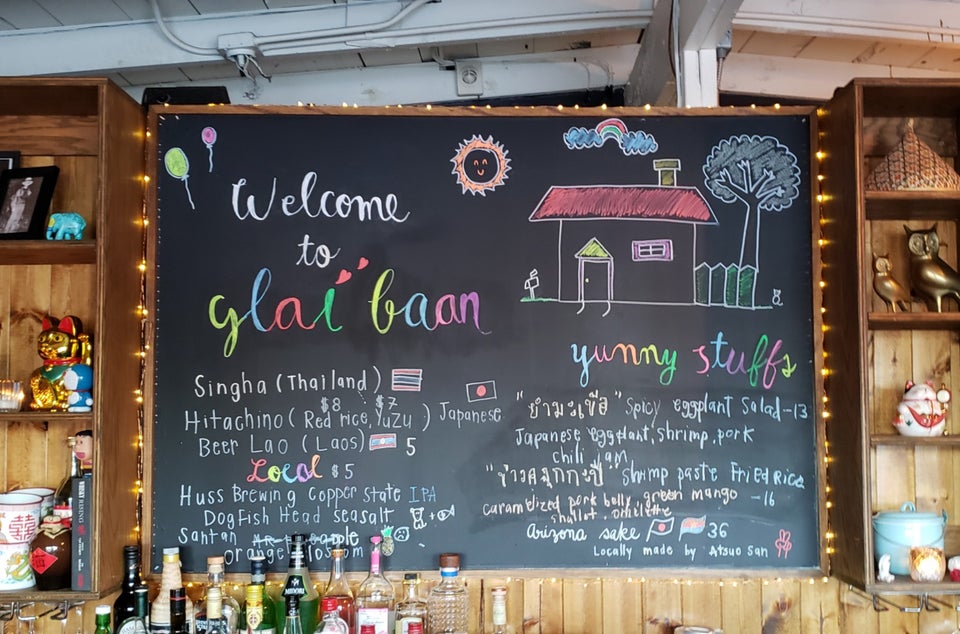 Welcome
to
glai baan
Singha (Thailand)
$8 $7
Hitachino (Red rice, YuZu) Japanese
Beer Lao (Laos) 5
Local $5
Huss Brewing Copper State IPA
Dogfish Head SeaSalt
Santan
orange blossom
yunny stuffs
"ยำมะเขือ" Spicy eggplant Salad -13
Japanese eggplant, shrimp, pork
chili jam
"ข้าวคลุกกะปิ" Shrimp paste Fried Rice
caramelized pork belly, green mango -16
shallot, omelette
Arizona sake 36
Locally made by Atsuo San
RISING
MIDORI